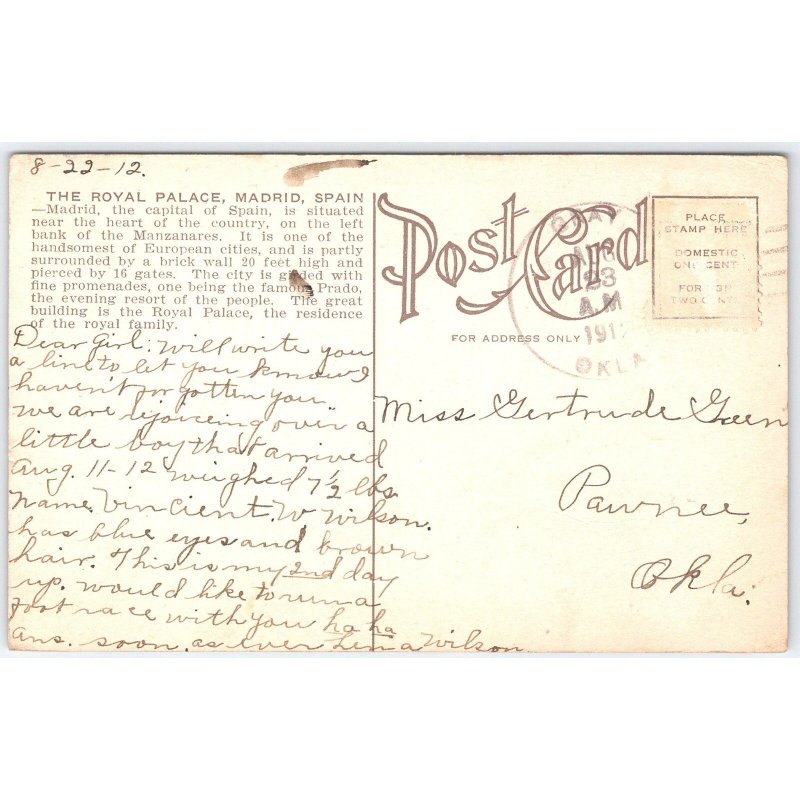 8-22-12.
THE ROYAL PALACE, MADRID, SPAIN
—Madrid, the capital of Spain, is situated
near the heart of the country, on the left
bank of the Manzanares. It is one of the
handsomest of European cities, and is partly
surrounded by a brick wall 20 feet high and
pierced by 16 gates. The city is girded with
fine promenades, one being the famous Prado,
the evening resort of the people. The great
building is the Royal Palace, the residence
of the royal family.
Dear Girl: Will write you
a line to let you know I
haven't forgotten you
we are rejoicing over a
little boy that arrived
Aug. 11-12 weighed 7 1/2 lbs.
Name. Vincient. W Wilson.
has blue eyes and brown
hair. This is my 2nd day
up. would like to run a
foot race with you ha ha
ans. soon. as ever Lena Wilson
Post Card
FOR ADDRESS ONLY
AUG
23
A.M
1912
OKLA
PLACE
STAMP HERE
DOMESTIC
ONE CENT
FOR
TWO CENTS
Miss Gertrude Green
Pawnee,
Okla.